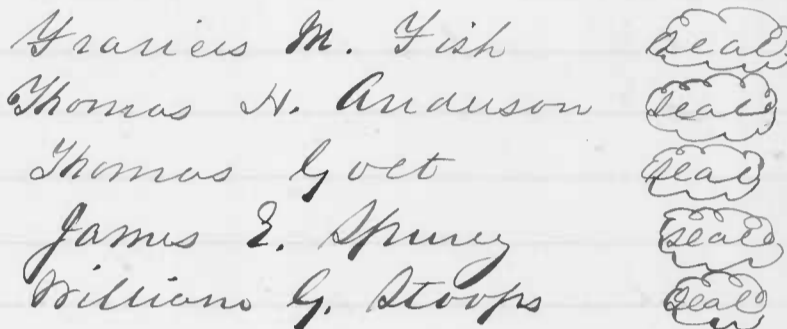 Francis M. Fish seal
Thomas H. Anderson seal
Thomas Goet seal
James E. Spurey seal
William G. Stoops seal